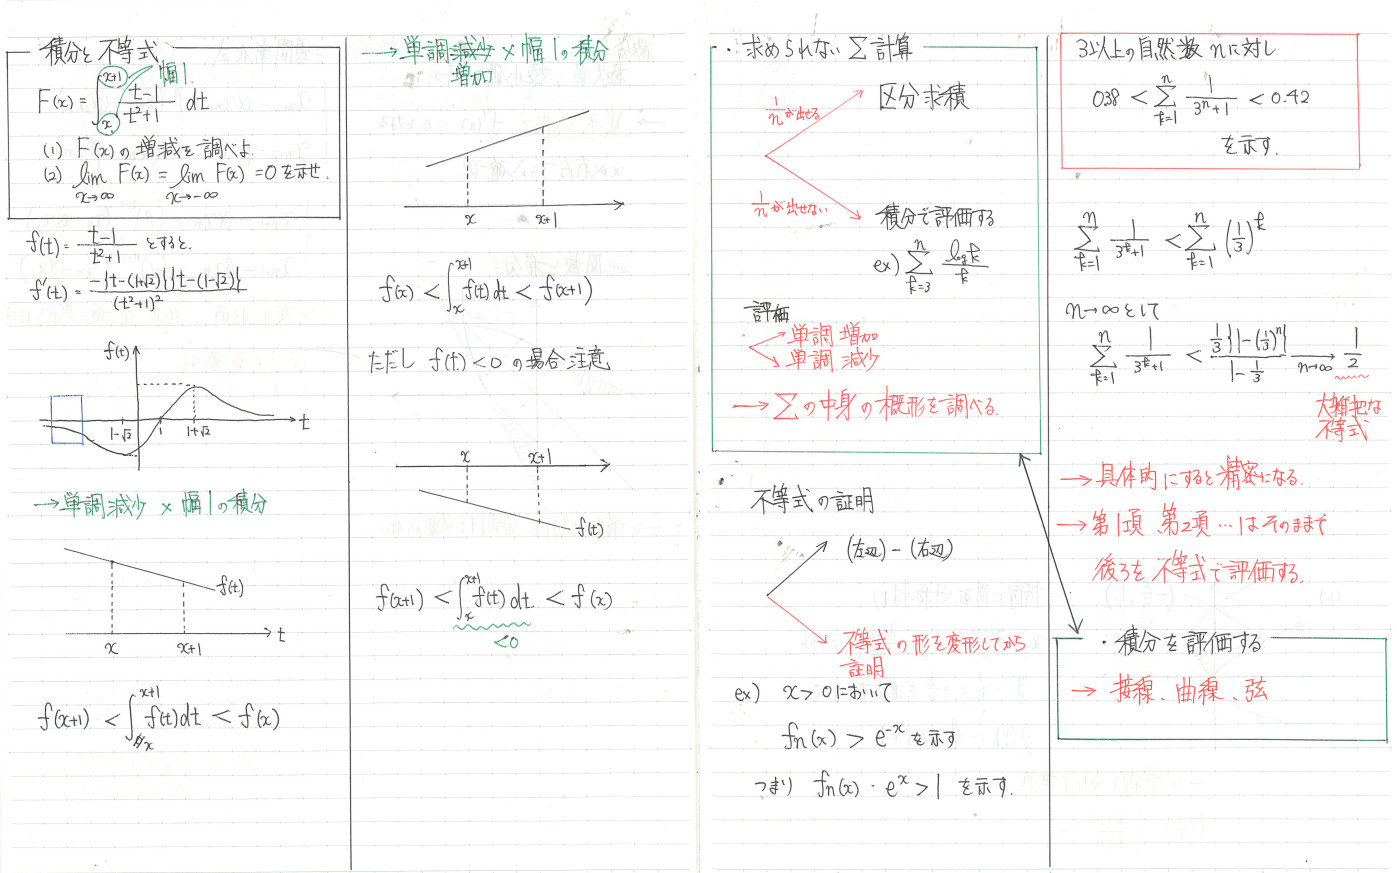 積分と不等式
幅1.
F(x) = ∫_x^{x+1} (t-1)/(t²+1) dt
(1) F(x)の増減を調べよ.
(2) lim_{x→∞} F(x) = lim_{x→-∞} F(x) = 0 を示せ.
f(t) = (t-1)/(t²+1) とすると.
f'(t) = -{t-(1+√2)}{t-(1-√2)}/(t²+1)²
f(t)
1-√2 1 1+√2 t
→単調減少 × 幅1の積分
f(t)
x x+1 t
f(x+1) < ∫_x^{x+1} f(t)dt < f(x)
→単調減少 × 幅1の積分
増加
x x+1
f(x) < ∫_x^{x+1} f(t)dt < f(x+1)
ただし f(t)<0 の場合注意
x x+1
f(t)
f(x+1) < ∫_x^{x+1} f(t)dt < f(x)
<0
・求められない Σ計算
1/n が出せる
区分求積
1/n が出せない
積分で評価する
ex) Σ_{k=3}^{n} logk/k
評価
単調増加
単調減少
→ Σの中身の概形を調べる.
不等式の証明
(左辺)-(右辺)
不等式の形を変形してから
証明
ex) x>0において
fn(x) > e^{-x} を示す
つまり fn(x)・e^x > 1 を示す.
3以上の自然数nに対し
0.38 < Σ_{k=1}^{n} 1/(3^n+1) < 0.42
を示す.
Σ_{k=1}^{n} 1/(3^k+1) < Σ_{k=1}^{n} (1/3)^k
n→∞として
Σ_{k=1}^{n} 1/(3^k+1) < (1/3){1-(1/3)^n}/(1-1/3) →_{n→∞} 1/2
大雑把な
不等式
→具体的にすると精密になる.
→第1項、第2項…はそのままで
後ろを不等式で評価する.
・積分を評価する
→ 接線、曲線、弦